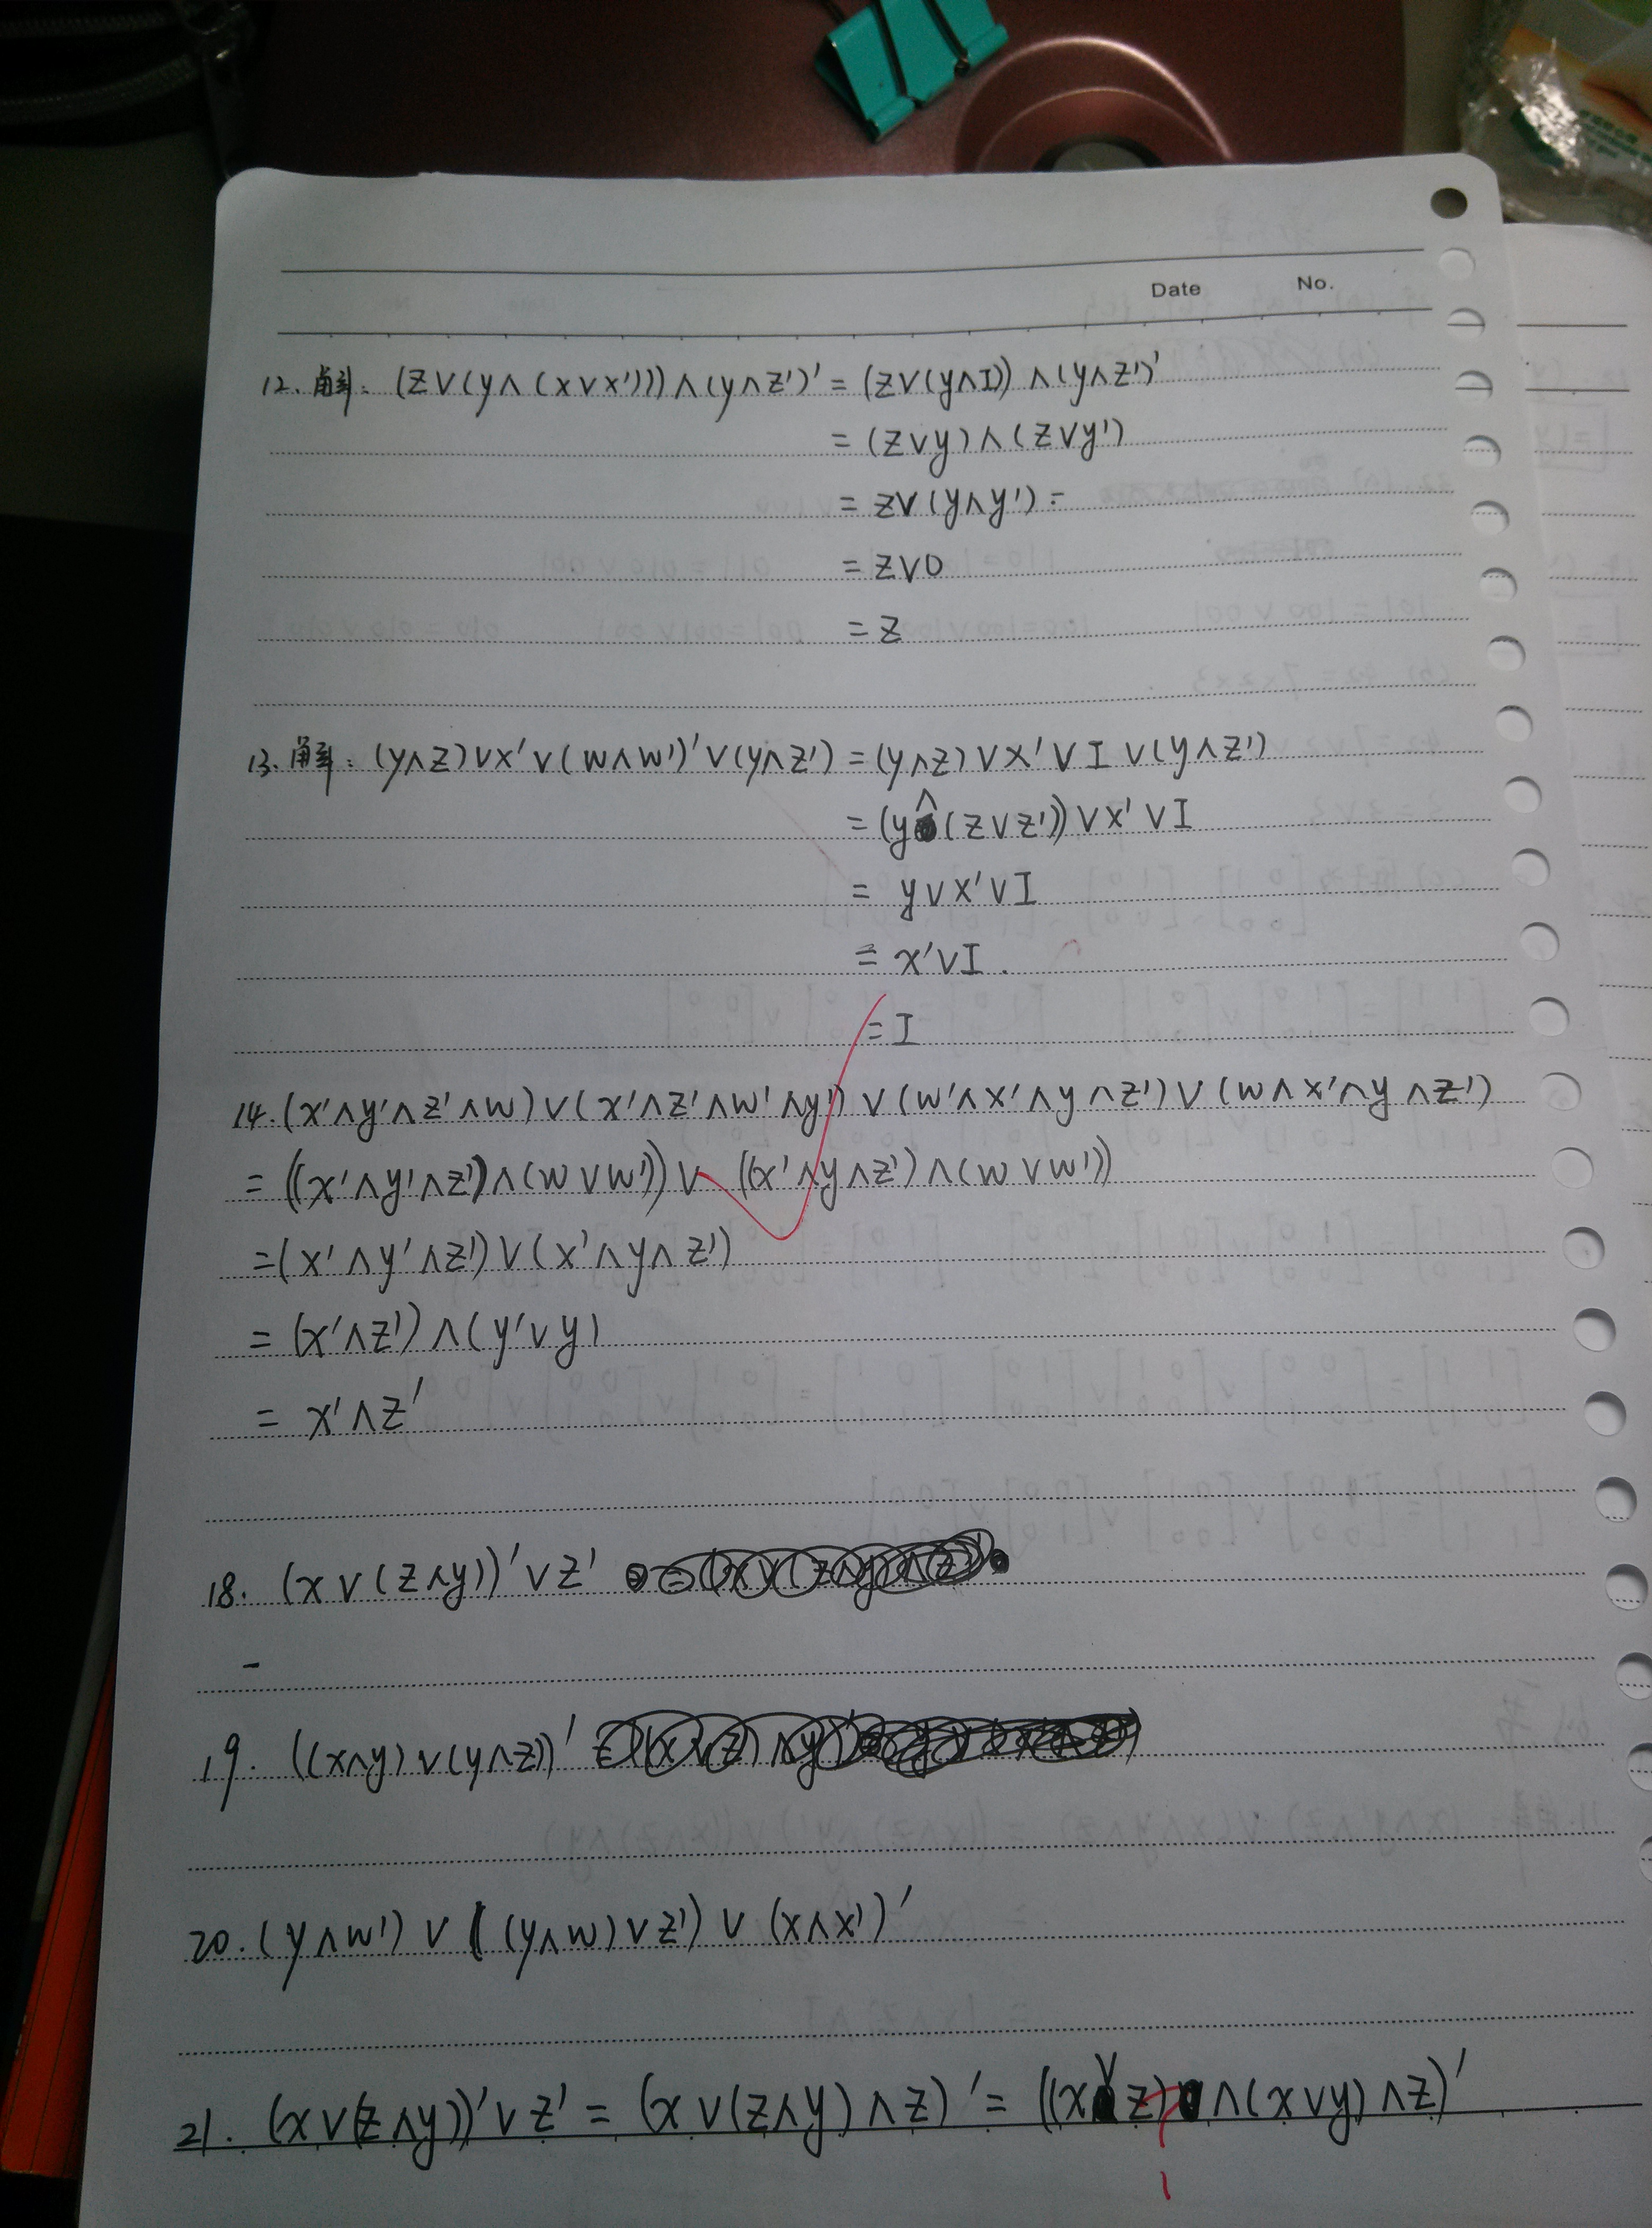 Date No.
12. 解: (z∨(y∧(x∨x')))∧(y∧z')' = (z∨(y∧I))∧(y∧z')'
= (z∨y)∧(z∨y')
= z∨(y∧y') =
= z∨0
= z
13. 解: (y∧z)∨x'∨(w∧w')'∨(y∧z') = (y∧z)∨x'∨I∨(y∧z')
= (y∧(z∨z'))∨x'∨I
= y∨x'∨I
= x'∨I.
= I
14. (x'∧y'∧z'∧w)∨(x'∧z'∧w'∧y')∨(w'∧x'∧y∧z')∨(w∧x'∧y∧z')
= ((x'∧y'∧z')∧(w∨w'))∨((x'∧y∧z')∧(w∨w'))
=(x'∧y'∧z')∨(x'∧y∧z')
= (x'∧z')∧(y'∨y)
= x'∧z'
18. (x∨(z∧y))'∨z'
19. ((x∧y)∨(y∧z))'
20. (y∧w')∨((y∧w)∨z')∨(x∧x')'
21. (x∨(z∧y))'∨z' = (x∨(z∧y)∧z)' = ((x∨z)∧(x∨y)∧z)'